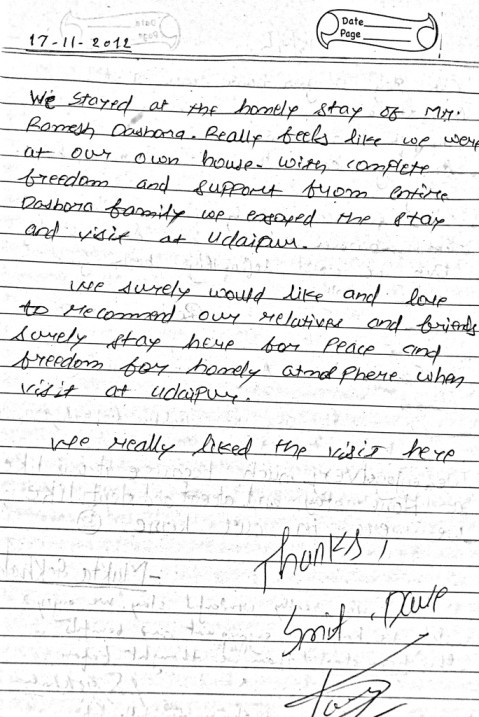 Date
Page
17-11-2012
We stayed at the homely stay of Mr.
Ramesh Dashora. Really feels like we were
at our own house. with complete
freedom and support from entire
Dashora family we enjoyed the stay
and visit at Udaipur.
We surely would like and love
to recommend our relatives and friends
surely stay here for Peace and
freedom for homely atmosphere when
visit at Udaipur.
We really liked the visit here
Thanks,
Smit. Dave